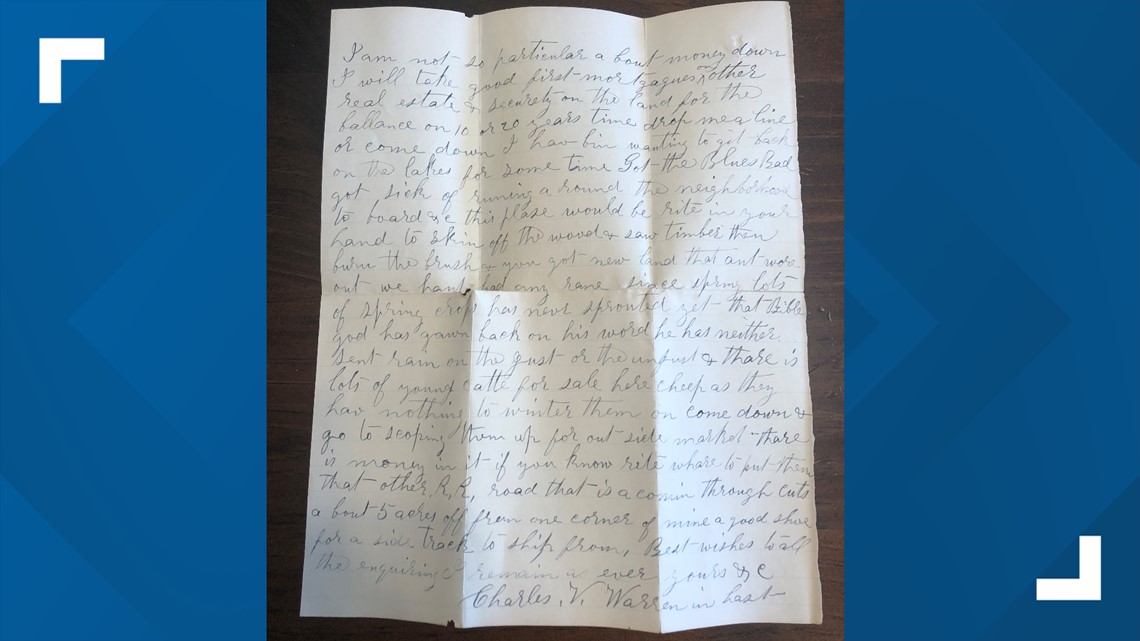 I am not so particular a bout money down
I will take good first-mortgagues or other
real estate & securety on the land for the
ballance on 10 or 20 years time drop me a line
or come down I hav bin wanting to git back
on the lakes for some time Got the Blues Bad
got sick of runing a round the neighborhood
to board &c this plase would be rite in your
hand to skin off the wood & saw timber then
burn the brush & you got new land that ant wore
out we hant had any rane since spring lots
of spring crops has never sprouted yet that Bible
god has gawn back on his word he has neither
sent rain on the gust or the unjust & thare is
lots of young catte for sale here cheep as they
hav nothing to winter them on come down &
go to scoping them up for out side market thare
is money in it if you know rite whare to put them
that other R, R, road that is a comin through cuts
a bout 5 acres off from one corner of mine a good shoe
for a side track to ship from, Best wishes to all
the enquiring remain as ever yours &c
Charles, V. Warren in hast